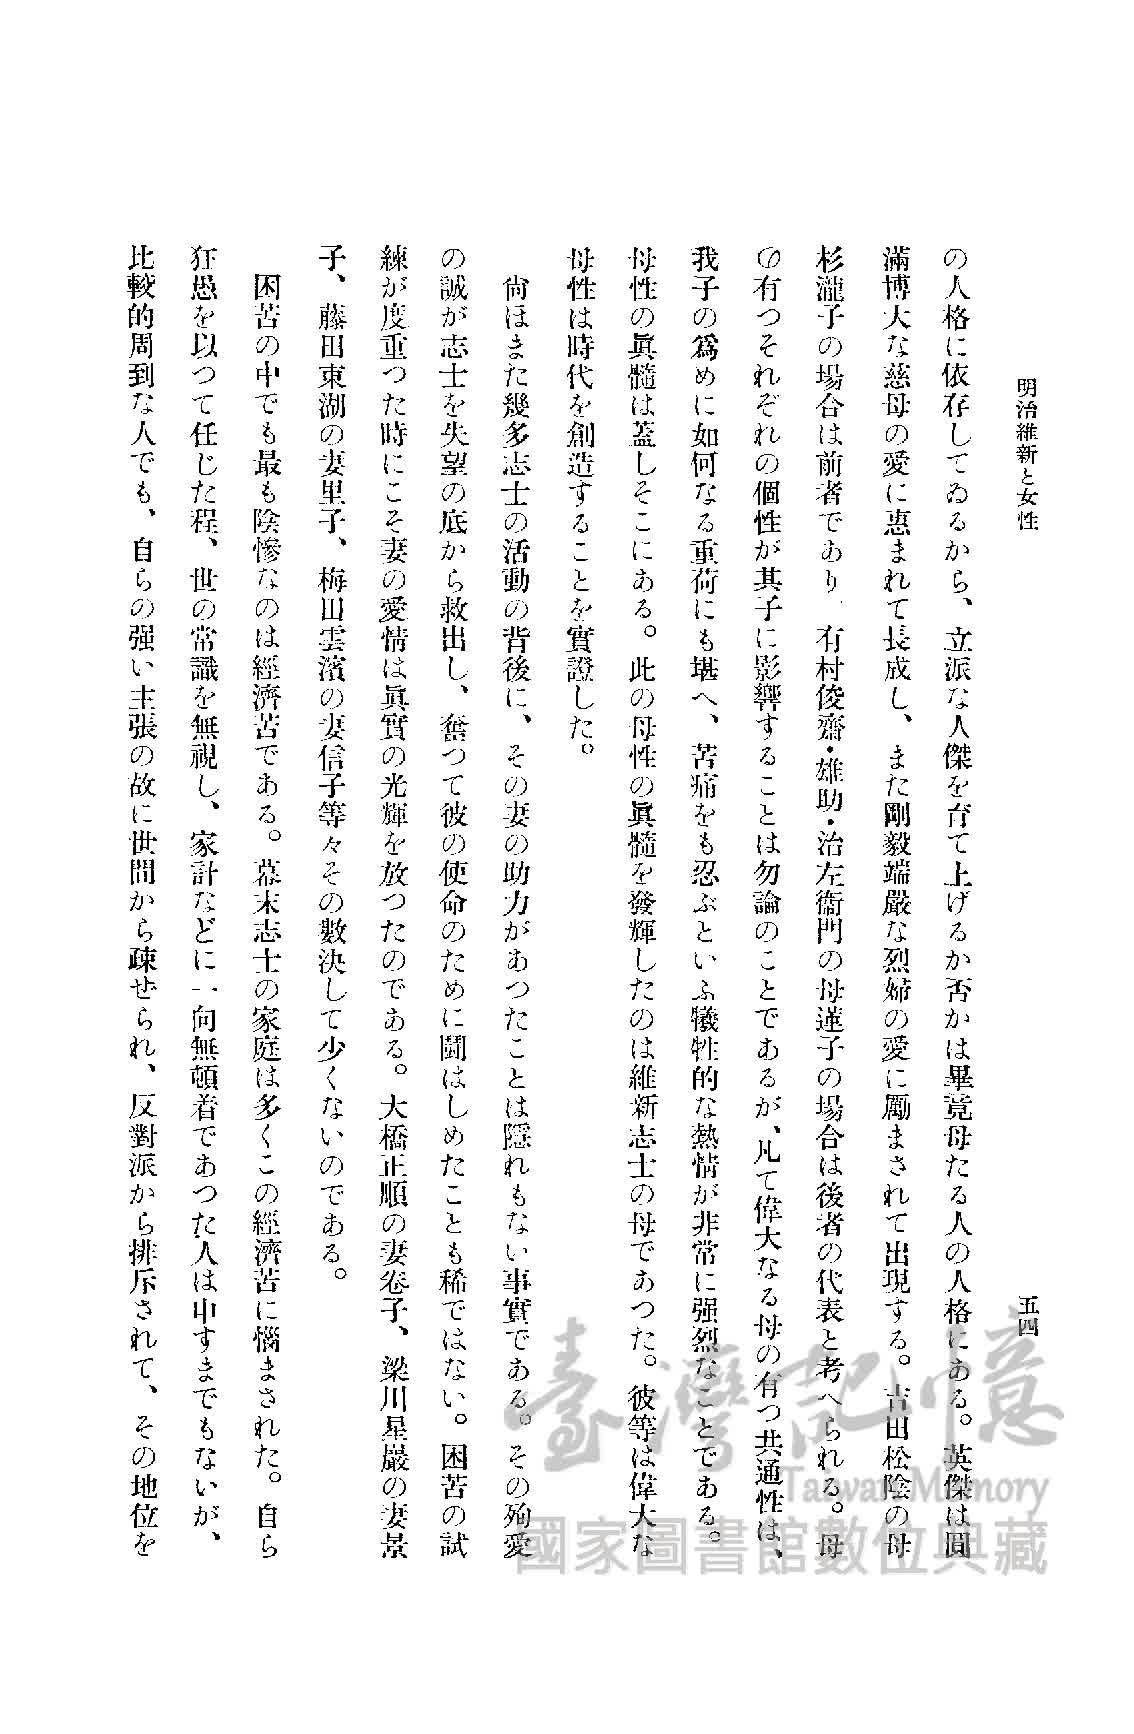 明治維新と女性
五四
の人格に依存してゐるから、立派な人傑を育て上げるか否かは畢竟母たる人の人格にある。英傑は圓
滿博大な慈母の愛に惠まれて長成し、また剛毅端嚴な烈婦の愛に勵まされて出現する。吉田松陰の母
杉瀧子の場合は前者であり、有村俊齋・雄助・治左衞門の母蓮子の場合は後者の代表と考へられる。母
の有つそれぞれの個性が其子に影響することは勿論のことであるが、凡て偉大なる母の有つ共通性は、
我子の爲めに如何なる重荷にも堪へ、苦痛をも忍ぶといふ犧牲的な熱情が非常に强烈なことである。
母性の眞髓は蓋しそこにある。此の母性の眞髓を發輝したのは維新志士の母であつた。彼等は偉大な
母性は時代を創造することを實證した。
尙ほまた幾多志士の活動の背後に、その妻の助力があつたことは隱れもない事實である。その殉愛
の誠が志士を失望の底から救出し、奮つて彼の使命のために鬪はしめたことも稀ではない。困苦の試
練が度重つた時にこそ妻の愛情は眞實の光輝を放つたのである。大橋正順の妻卷子、梁川星巖の妻景
子、藤田東湖の妻里子、梅田雲濱の妻信子等々その數決して少くないのである。
困苦の中でも最も陰慘なのは經濟苦である。幕末志士の家庭は多くこの經濟苦に惱まされた。自ら
狂愚を以つて任じた程、世の常識を無視し、家計などに一向無頓着であつた人は申すまでもないが、
比較的周到な人でも、自らの强い主張の故に世間から疎せられ、反對派から排斥されて、その地位を
臺灣記憶
Taiwan Memory
國家圖書館數位典藏